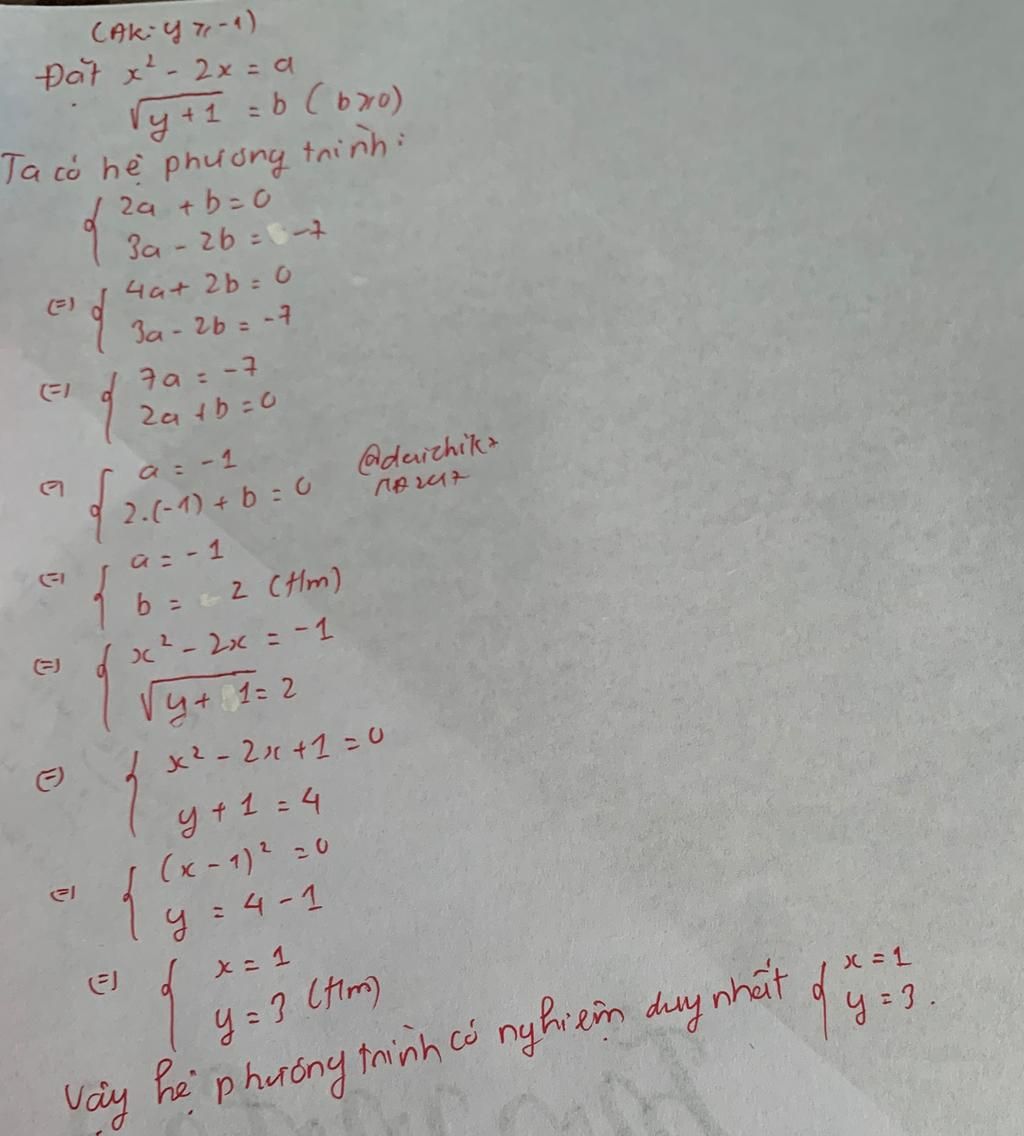 (ĐK: y ≥ -1)
Đặt x² - 2x = a
√(y + 1) = b (b≥0)
Ta có hệ phương trình:
{ 2a + b = 0
3a - 2b = -7
(=) { 4a + 2b = 0
3a - 2b = -7
(=) { 7a = -7
2a + b = 0
(=) { a = -1
2.(-1) + b = 0
(=) { a = -1
b = 2 (t/m)
(=) { x² - 2x = -1
√(y + 1) = 2
(=) { x² - 2x + 1 = 0
y + 1 = 4
(=) { (x - 1)² = 0
y = 4 - 1
(=) { x = 1
y = 3 (t/m)
Vậy hệ phương trình có nghiệm duy nhất { x = 1
y = 3.